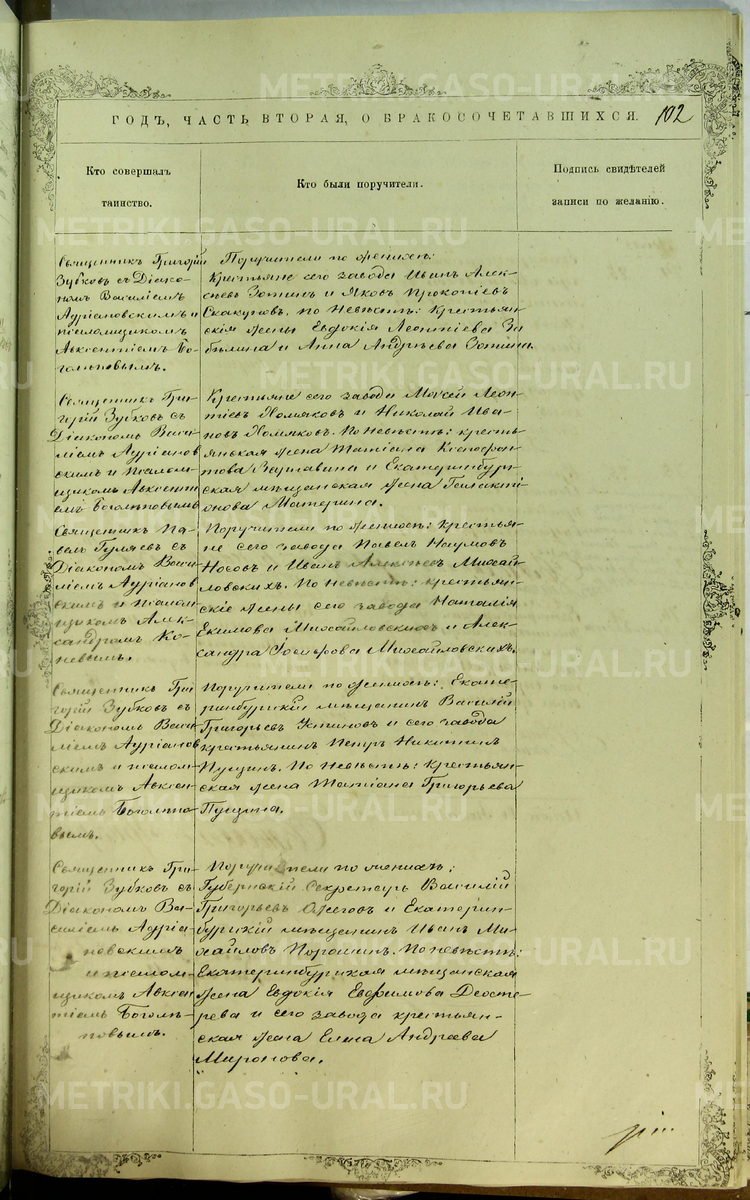 ГОДЪ, ЧАСТЬ ВТОРАЯ, О БРАКОСОЧЕТАВШИХСЯ.
102
Кто совершалъ
таинство.
Кто были поручители.
Подпись свидѣтелей
записи по желанію.
Священникъ Григорій
Зубковъ съ Діако-
номъ Василіемъ
Адріановскимъ и
псаломщикомъ
Авксентіемъ Бо-
голѣповымъ.
Поручители по женихѣ:
Крестьяне сего завода Иванъ Алек-
сѣевъ Зотинъ и Яковъ Прокопіевъ
Скакуновъ. По невѣстѣ: Крестьян-
скія жены Евдокія Леонтіева За
бѣлина и Анна Андрѣева Зотина
Священникъ Гри-
горій Зубковъ съ
Діакономъ Васи
ліемъ Адріанов
скимъ и псалом-
щикомъ Авксенті
емъ Боголѣповымъ
Крестьяне сего завода Мосей Леон
тіевъ Хомяковъ и Николай Ива-
новъ Хомяковъ. По невѣстѣ: кресть-
янская жена Татіана Ксенофон
това и Екатеринбург-
ская мѣщанская жена
онова Материна.
Священникъ Па-
велъ Гуляевъ съ
Діакономъ Васи
ліемъ Адріанов
скимъ и псалом
щикомъ Алек-
сандромъ Ко-
невымъ.
Поручители по женихѣ: крестья-
не сего завода Павелъ Наумовъ
Носовъ и Иванъ Алексѣевъ Михай-
ловскихъ. По невѣстѣ: крестьян-
скіе жены сего завода Наталія
Екимова Михайловскихъ и Алек-
сандра Михайловскихъ.
Священникъ Гри
горій Зубковъ съ
Діакономъ Васи
ліемъ Адріанов
скимъ и псалом-
щикомъ Авксен-
тіемъ Боголѣпо-
вымъ.
Поручители по женихѣ: Екате-
ринбургскій мѣщанинъ Василій
Григорьевъ Устиновъ и сего завода
крестьянинъ Петръ Никитинъ
Пущинъ. По невѣстѣ: Крестьян-
ская жена Татіана Григорьева
Пущина.
Священникъ Гри-
горій Зубковъ съ
Діакономъ Ва-
силіемъ Адріа-
новскимъ
и псалом-
щикомъ Авксен
тіемъ Боголѣ-
повымъ.
Поручители по женихѣ:
Губернскій Секретарь Василій
Григорьевъ Ожеговъ и Екатерин-
бургскій мѣщанинъ Иванъ Ми-
хайловъ Порошинъ. По невѣстѣ:
Екатеринбургская мѣщанская
жена Евдокія Евфимова Деосте-
рева и сего завода крестьян-
ская жена Елена Андреева
Миронова.
METRIKI.GASO-URAL.RU